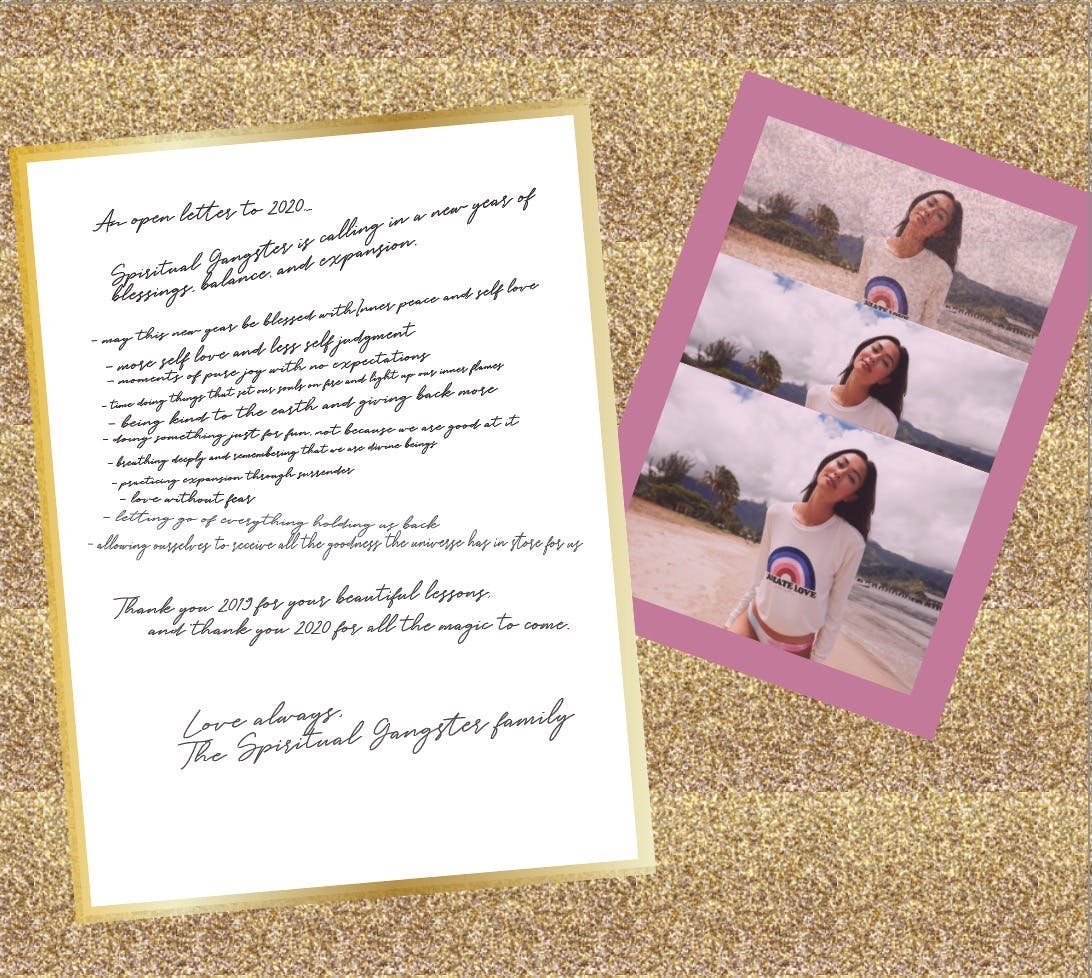 An open letter to 2020...
Spiritual Gangster is calling in a new year of
blessings, balance, and expansion.
- may this new year be blessed with inner peace and self love
- more self love and less self judgment
- moments of pure joy with no expectations
- time doing things that set our souls on fire and light up our inner flames
- being kind to the earth and giving back more
- doing something just for fun, not because we are good at it
- breathing deeply and remembering that we are divine beings
- practicing expansion through surrender
- love without fear
- letting go of everything holding us back
- allowing ourselves to receive all the goodness the universe has in store for us
Thank you 2019 for your beautiful lessons,
and thank you 2020 for all the magic to come.
Love always,
The Spiritual Gangster family
LOVE
LOVE